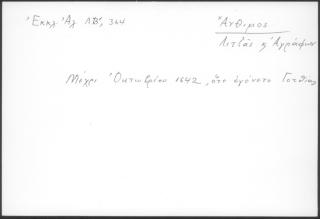 Ἐκκλ Ἀλ ΛΒ', 364
Ἄνθιμος
Λιτζᾶς κ' Ἀγράφων
Μέχρι Ὀκτωβρίου 1642, ὅτε ἐγένετο Γοτθίας